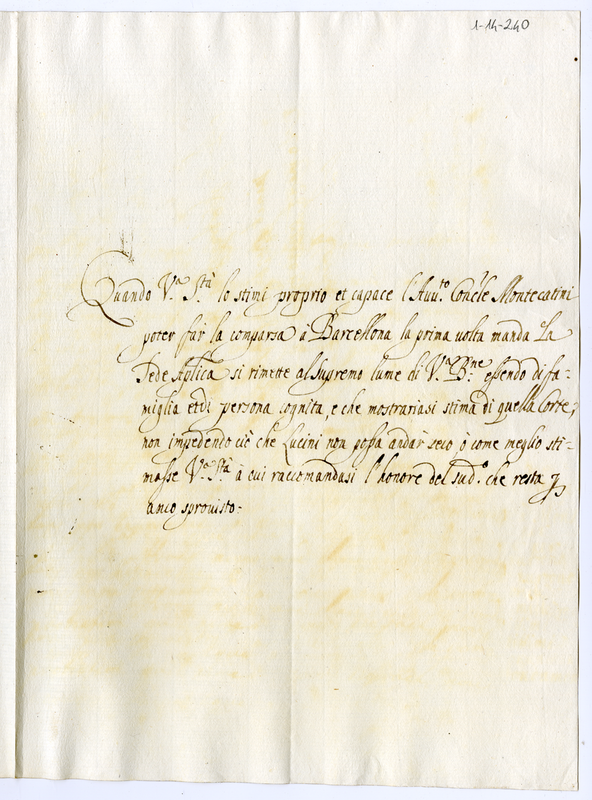 1-14-240
Quando V.ra S.tà lo stimi proprio et capace l'Auu.to Conc.le Montecatini
poter far la comparsa à Barcellona la prima volta manda La
Sede Ap.lica si rimette al supremo lume di V.ra B.ne essendo di fa-
miglia et di persona cognita, e che mostrariasi stima di quella Corte,
non impedendo ciè che Lucini non possa andar seco ò come meglio sti-
masse V.ra S.tà à cui raccomandasi l'honore del sud.o che resta p
anco sprouisto.